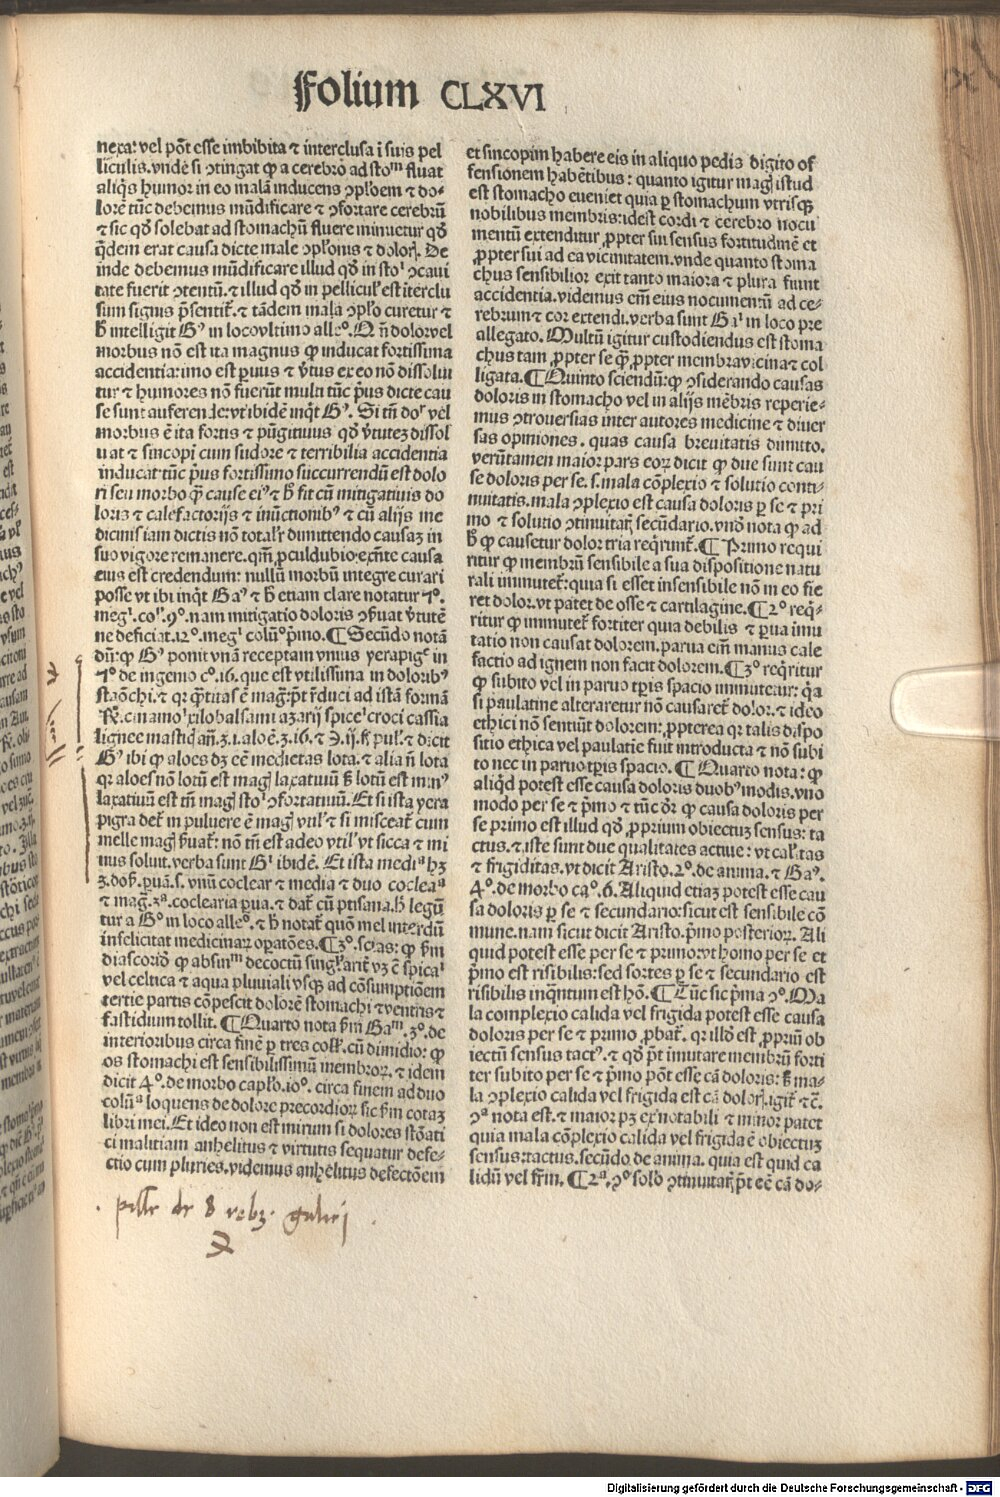 Folium CLXVI
nexa: vel põt esse imbibita ⁊ interclusa ĩ suis pel
liculis. vnde si ꝯtingat ꝙ a cerebro ad stoᵐ fluat
aliq̃s humor in eo malã inducens ꝯplõem ⁊ do⸗
lorẽ tũc debemus mũdificare ⁊ ꝯfortare cerebrũ
⁊ sic qḋ solebat ad stomachũ fluere minuetur qḋ
q̃dem erat causa dicte male ꝯplõnis ⁊ dolorꝫ. De
inde debemus mũdificare illud qḋ in stoˡ ꝯcaui
tate fuerit ꝯtentũ. ⁊ illud qḋ in pelliculˢ est iterclu
sum signis p̃sentiť. ⁊ tãdem mala ꝯplõ curetur ⁊
ħ intelligit Gˢ in loco vltimo alleᵒ. Q ñ dolor vel
morbus nõ est ita magnus ꝙ inducat fortissima
accidentia: imo est paruus ⁊ v̾tus ex eo nõ dissolui
tur ⁊ humores nõ fuerũt multi tũc p̃us dicte cau
se sunt auferende: vt ibidẽ inq̃t Gˢ. Si tñ doʳ vel
morbus ẽ ita fortis ⁊ pũgitiuus qḋ v̾tuteꝫ dissol
uat ⁊ sincopi cum sudore ⁊ terribilia accidentia
inducat: tũc p̃us fortissimo succurrendũ est dolo
ri seu morbo q̃ cause eiˢ ⁊ ħ fit cũ mitigatiuis do
loris ⁊ calefactorijs ⁊ inũctionibˢ ⁊ cũ alijs me
dicinis iam dictis nõ totalʳ dimittendo causaꝫ in
suo vigore remanere. qm̃ ꝓculdubio: exñte causa
eius est credendum: nullũ morbũ integre curari
posse vt ibi inq̃t Gaˢ ⁊ ħ etiam clare notatur 7ᵒ.
megˡ. coˡ. 9ᵒ. nam mitigatio doloris ꝯseruat v̾tutẽ
ne deficiat. 12ᵒ. megˡ colũᵒ p̃mo. ¶ Secũdo notã
dũ: ꝙ Gˢ ponit vnã receptam vnius yerapigᵉ in
7ᵒ de ingenio cᵒ. 16. que est vtilissima in doloribˢ
stãochi. ⁊ qꝛ q̃titas ẽ mag̃. p̃t r̃duci ad istã formã
℞. cinamoⁱ xilobalsami azarij spiceˡ croci cassia
lignee mastiq̃ añ. ʒ. i. aloẽ. ʒ. 16. ⁊ ℈. ij. f. pulˢ. ⁊ dicit
Gˢ ibi ꝙ aloes dꝫ eẽ medietas lota. ⁊ alia ñ lota
qꝛ aloes nõ lotũ est magˢ laxatiuũ sꝫ lotũ est minˢ
laxatiuũ est tñ magˢ stoˡ ꝯfortatiuũ. Et si ista yera
pigra deť in puluere ẽ magˢ vtilˢ ⁊ si misceať cum
melle magˢ p̃uať: nõ tñ est adeo vtilˢ vt sicca ⁊ mi
nus soluit. verba sunt Gˡ ibidẽ. Et ista mediᵃ hꝫ
3. dos̃. paruã. s. vnũ coclear ⁊ media ⁊ duo cocleaᵃ
⁊ mag̃. 3ᵃ. coclearia parua. ⁊ dať cũ ptisana. ħ legũ
tur a Gᵒ in loco alleᵒ. ⁊ ħ notať quõ mel interdũ
infelicitat medicinaꝝ oꝑatões. ¶ 3ᵒ. scias: ꝙ ẜm
diascoriõ ꝙ absinᵐ decoctũ singlʳariť vꝫ cũ spicaˡ
vel celtica ⁊ aqua pluuiali vsqꝫ ad cõsumptiõem
tertie partis cõpescit dolorẽ stomachi ⁊ ventris ⁊
fastidium tollit. ¶ Quarto nota ẜm Gaᵐ. 3ᵒ. de
interioribus circa finẽ ꝑ tres colˡ. cũ dimidio: ꝙ
os stomachi est sensibilissimũ membroꝝ. ⁊ idem
dicit 4ᵒ. de morbo capˡo. 10ᵒ. circa finem ad duo
colũᵃ loquens de dolore precordioꝝ sic ẜm cotaꝫ
libri mei. Et ideo non est mirum si dolores stõati
ci malitiam anhelitus ⁊ virtutis sequatur defe⸗
ctio cum pluries. videmus anhelitus defectõem
et sincopim habere eis in aliquo pedis digito of
fensionem habẽtibus: quanto igitur magˢ istud
est stomacho eueniet quia ꝑ stomachum vtrisqꝫ
nobilibus membris: idest cordi ⁊ cerebro nocu
mentũ extenditur ꝓpter sui sensus fortitudinẽ et
ꝓpter sui ad ea vicinitatem. vnde quanto stoma
chus sensibilior exit tanto maiora ⁊ plura fiunt
accidentia. videmus em̃ eius nocumentũ ad ce⸗
rebrum ⁊ cor extendi. verba sunt Gaˡ in loco pre
allegato. Multũ igitur custodiendus est stoma
chus tam ꝓpter se q̃ ꝓpter membra vicina ⁊ col
ligata. ¶ Quinto sciendũ: ꝙ ꝯsiderando causas
doloris in stomacho vel in alijs mẽbris reperie⸗
mus ꝯtrouersias inter autores medicine ⁊ diuer
sas opiniones. quas causa breuitatis dimito.
verũtamen maior pars eoꝝ dicit ꝙ due sunt cau
se doloris per se. s. mala cõplexio ⁊ solutio conti⸗
nuitatis. mala ꝯplexio est causa doloris ꝑ se ⁊ pri
mo ⁊ solutio ꝯtinuitatꝫ secũdario. vnõ nota ꝙ ad
ħ ꝙ causetur dolor tria req̃runť. ¶ Primo requi
ritur ꝙ membrũ sensibile a sua dispositione natu
rali immuteť: quia si esset insensibile nõ in eo fie
ret dolor. vt patet de osse ⁊ cartilagine. ¶ 2ᵒ req̃⸗
ritur ꝙ immuteť fortiter quia debilis ⁊ parua imu
tatio non causat dolorem. parua em̃ manus cale
factio ad ignem non facit dolorem. ¶ 3ᵒ req̃ritur
ꝙ subito vel in paruo tꝑis spacio immutetur: q̃a
si paulatine alteraretur nõ causareť dolor. ⁊ ideo
ethici nõ sentiũt dolorem: ꝓpterea qꝛ talis dispo
sitio ethica vel paulatiẽ fuit introducta ⁊ nõ subi
to nec in paruo tꝑis spacio. ¶ Quarto nota: ꝙ
aliq̃d potest esse causa doloris duobˢ modis. vno
modo per se ⁊ p̃mo ⁊ tũc dr̃ ꝙ causa doloris per
se primo est illud qḋ ꝓprium obiectuꝫ sensus: ta
ctus. ⁊ iste sunt due qualitates actiue: vt calˡitas
⁊ frigiditas. vt dicit Aristo. 2ᵒ. de anima. ⁊ Gaˢ.
4ᵒ. de morbo caᵒ. 6. Aliquid etiaꝫ potest esse cau
sa doloris ꝑ se ⁊ secundario: sicut est sensibile cõ
mune. nam sicut dicit Aristo. p̃mo posterioꝝ. Ali
quid potest esse per se ⁊ primo: vt homo per se et
p̃mo est risibilis: sed sortes ꝑ se ⁊ secundario est
risibilis inq̃ntum est hõ. ¶ Tũc sic p̃ma ꝯᵒ. Ma
la complexio calida vel frigida potest esse causa
doloris per se ⁊ primo ꝓbať. qꝛ illḋ est ꝓpriũ ob
iectũ sensus tactˢ. ⁊ qḋ p̃t imutare membrũ forti
ter subito per se ⁊ p̃mo põt esse cã doloris: sꝫ ma⸗
la ꝯplexio calida vel frigida est cã dolorꝫ. igiť ⁊c̃.
ꝯᵃ nota est. ⁊ maior pꝫ ex notabili ⁊ minor patet
quia mala cõplexio calida vel frigida ẽ obiectuꝫ
sensus: tactus. secũdo de anima. quia est quid ca
lidũ vel frĩm. ¶ 2ᵃ. ꝯᵒ solõ ꝯtinuitatꝫ p̃t eẽ cã do⸗
pille de 8 rebꝫ. galiej
Digitalisierung gefördert durch die Deutsche Forschungsgemeinschaft - DFG